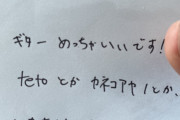 ギター めっちゃいいです!
tetoとか カネコアヤノとか、